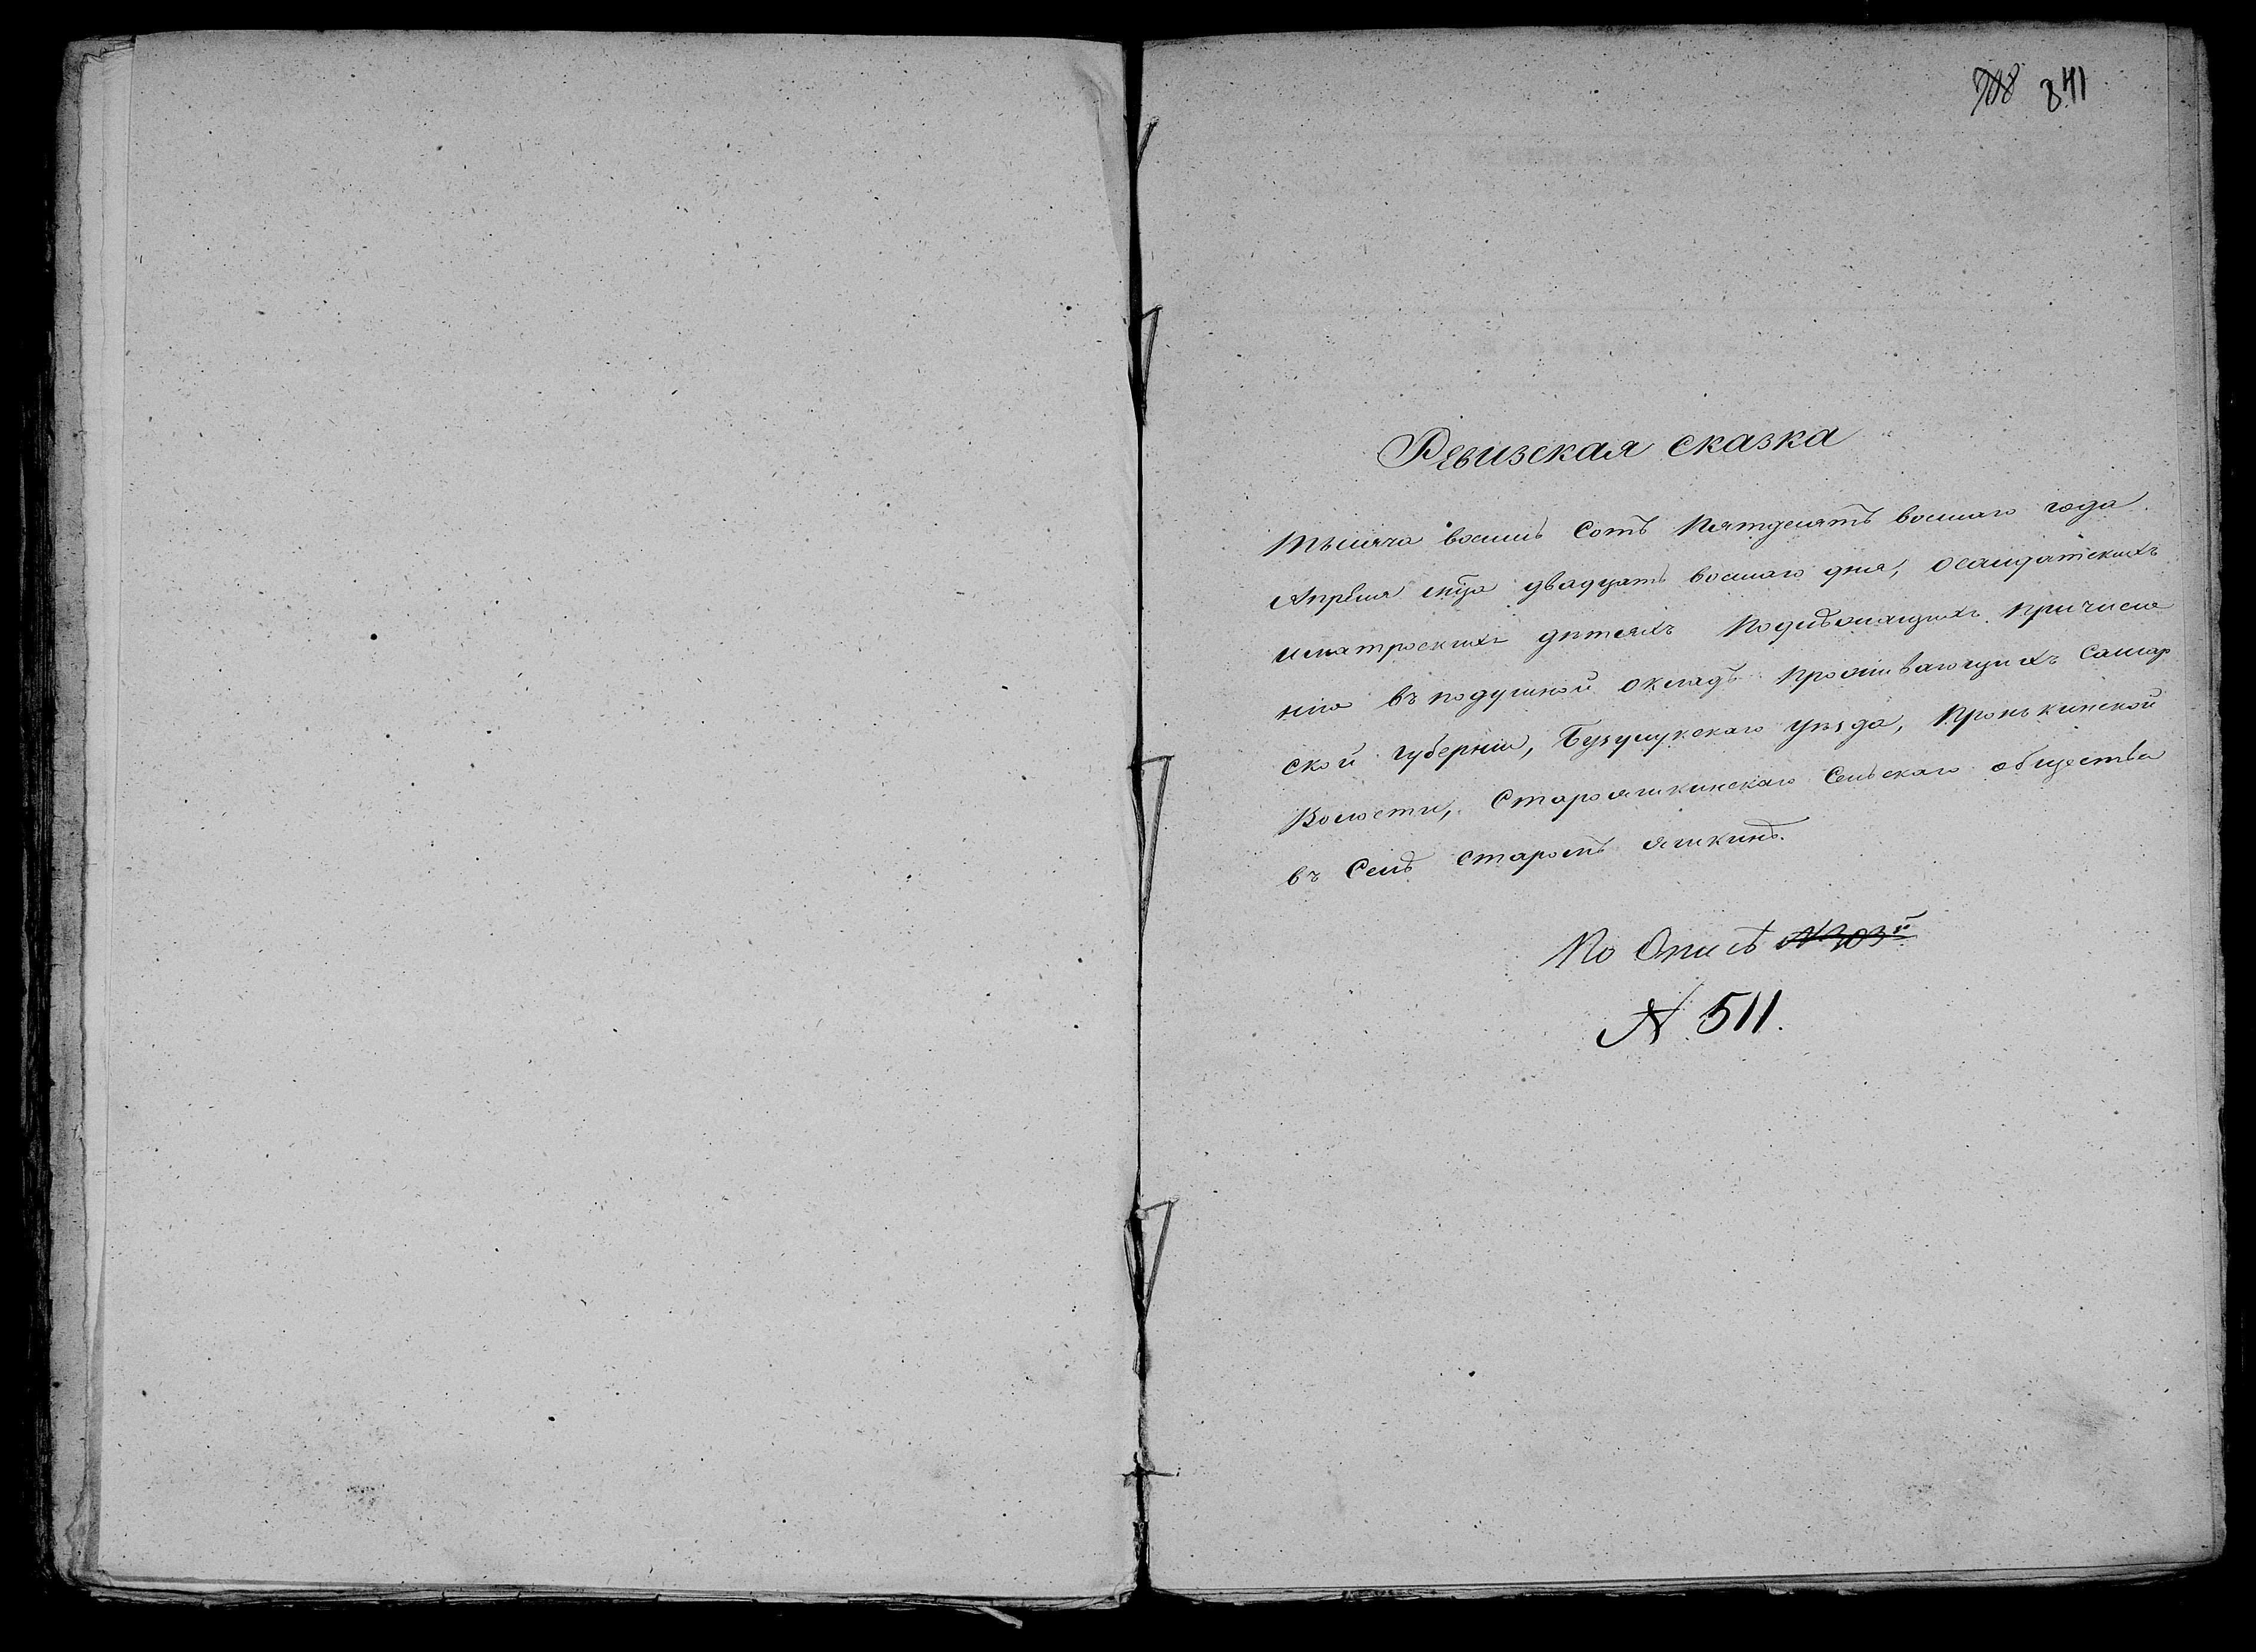 841
Ревизская сказка
Тысяча восемь Сотъ Пятдесятъ восмаго года
Апреля мѣца двадцать восмаго дня, осалдатскихъ
иматроскихъ дѣтяхъ Подлѣжащихъ причисле
нію въ подушной окладъ проживающихъ Самар
ской губерніи, Бузулукскаго уѣзда, Пронькинской
Волости, Старояшкинскаго Сельскаго общества
въ Селѣ Старомъ яшкинѣ.
По Описѣ № 303й
№ 511.